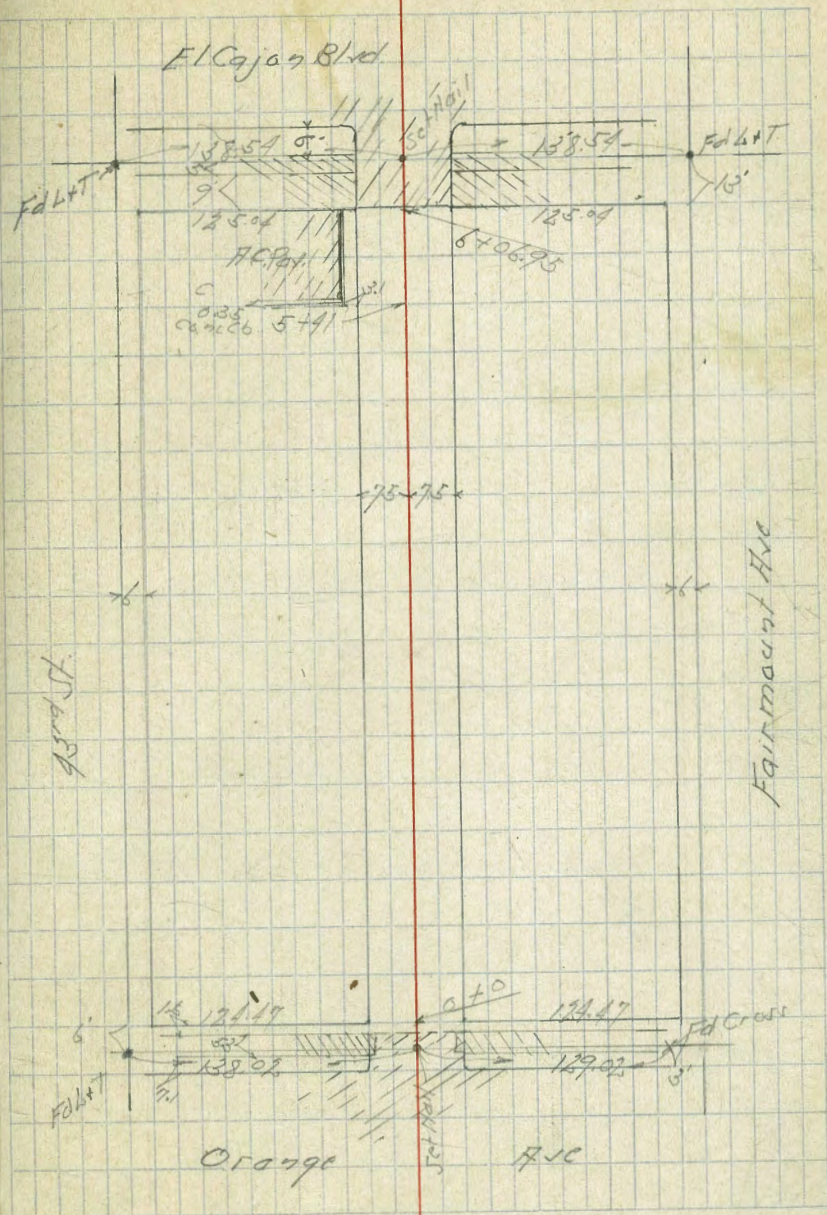 El Cajon Blvd.
Set Nail
138.54
138.54
Fd L+T
Fd L+T
9
13'
125.04
125.04
6+06.95
A.C. Pav.
3.1
C
0.35
Conc Cb. 5+41
7.5 7.5
6
6
43rd St.
Fairmount Ave
0+0
124.47
124.47
6'
Fd Cross
138.02
129.02
3'
7.1
Fd L+T
Set Nail
Orange Ave